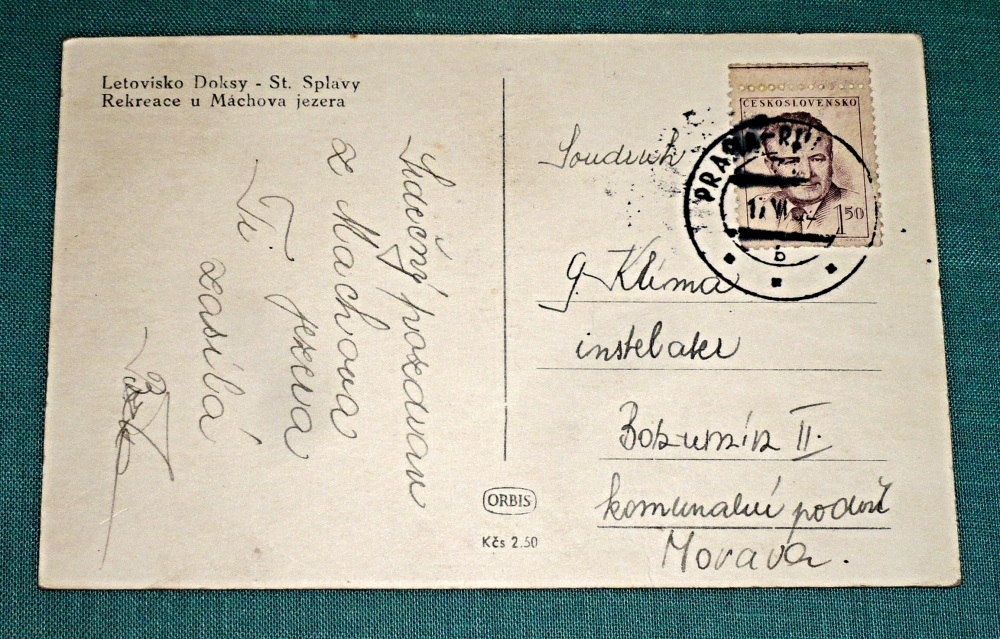 Letovisko Doksy - St. Splavy
Rekreace u Máchova jezera
Srdečný pozdrav
z Machova
Ti jezera
zasílá
Soudruh
G. Klíma
instelater
Bohumín II.
komunalní podnik
Morava.
ČESKOSLOVENSKO
1 50
PRAHA
17 VI
b
ORBIS
Kčs 2.50